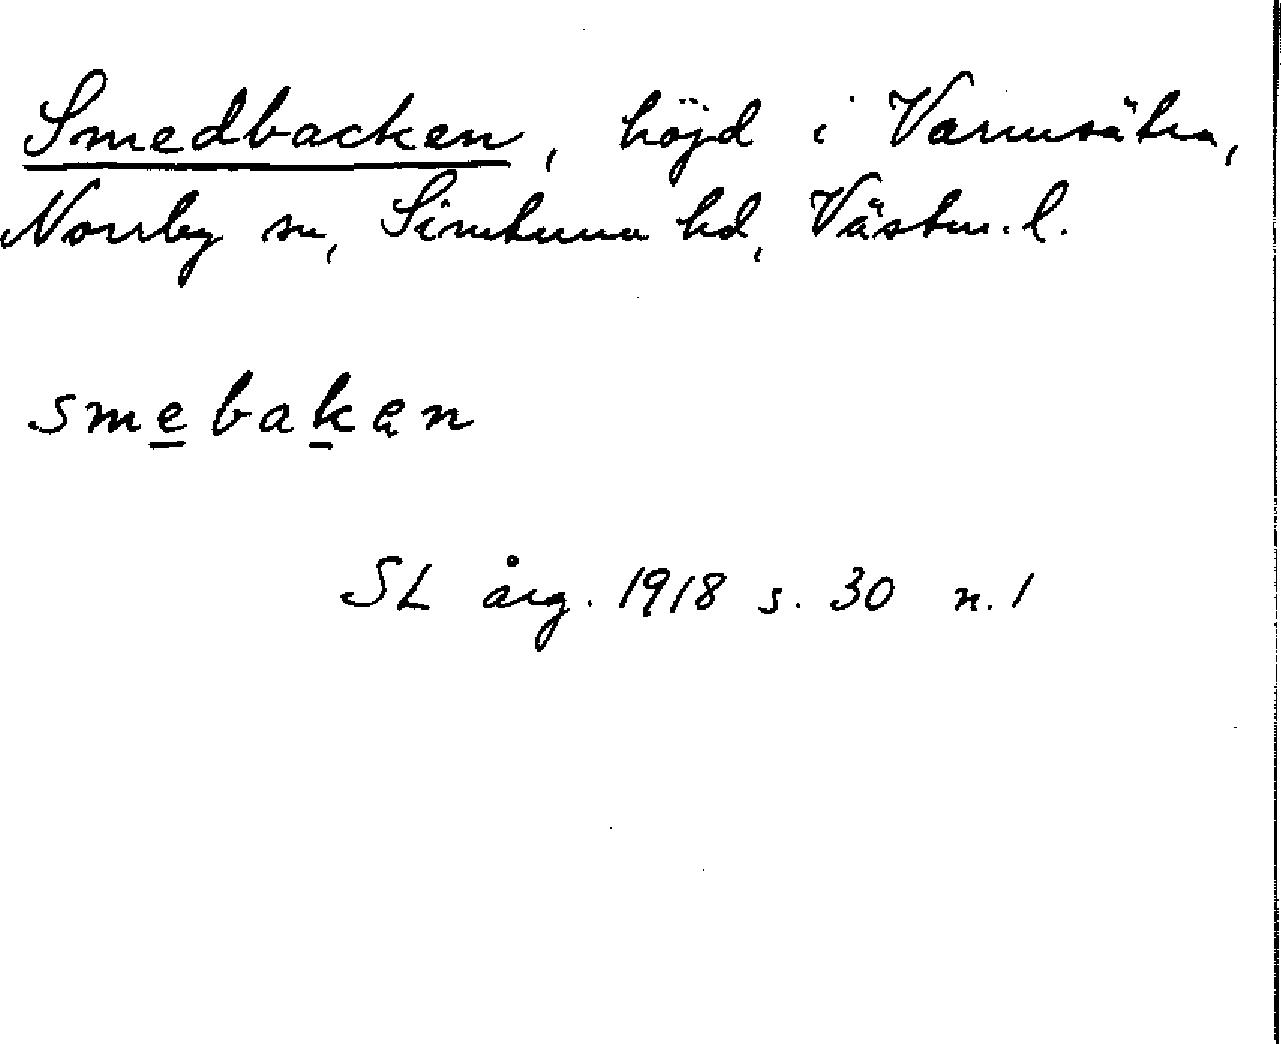 Smedbacken, höjd i Varmsätra,
Norrby sn, Simtuna hd, Västm. l.
smebakən
SL årg. 1918 s. 30 n. 1